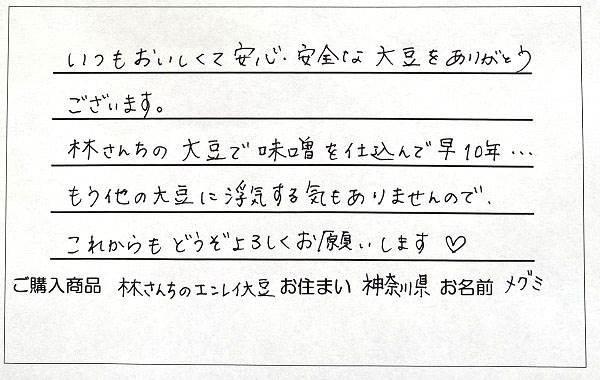 いつもおいしくて安心・安全な大豆をありがとう
ございます。
林さんちの大豆で味噌を仕込んで早10年…
もう他の大豆に浮気する気もありませんので、
これからもどうぞよろしくお願いします♡
ご購入商品 林さんちのエンレイ大豆 お住まい 神奈川県 お名前 メグミ